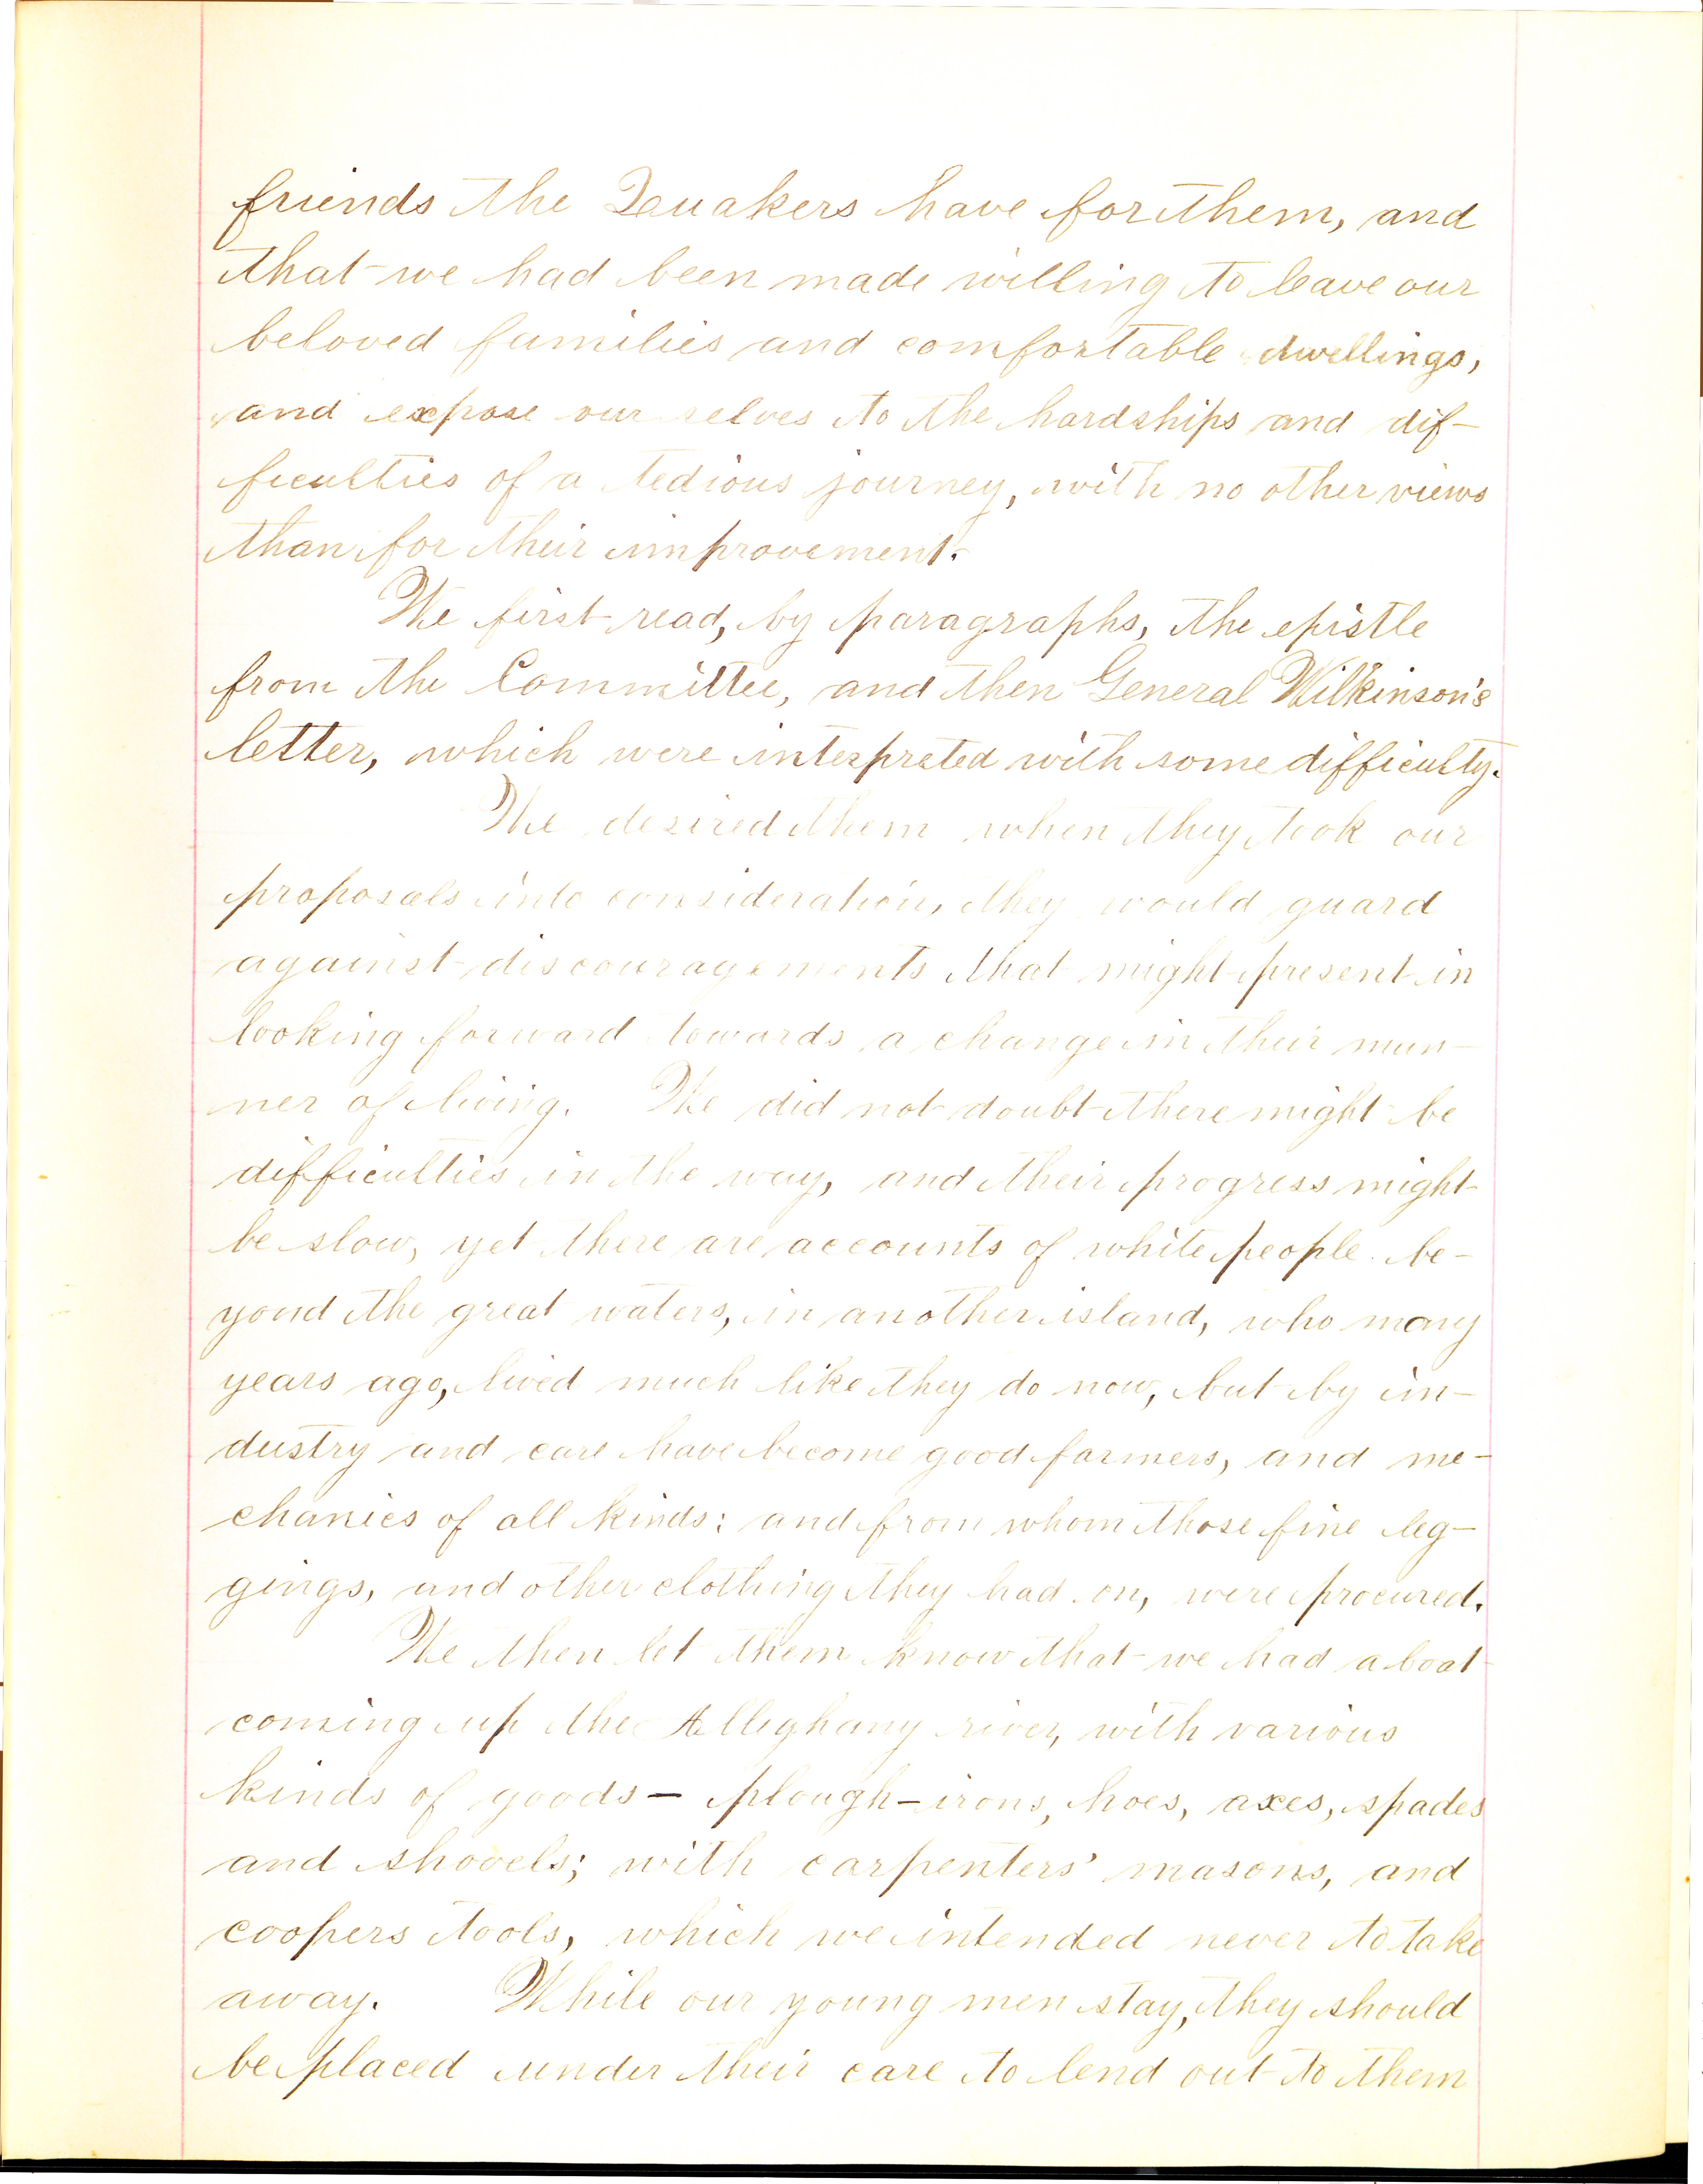 friends the Quakers have for them, and
that we had been made willing to leave our
beloved families and comfortable dwellings,
and expose our selves to the hardships and dif-
ficulties of a tedious journey, with no other views
than for their improvement.
We first read, by paragraphs, the epistle
from the Committee, and then General Wilkinson's
letter, which were interpreted with some difficulty.
We desired them when they took our
proposals into consideration, they would guard
against discouragements that might present in
looking forward towards a change in their man-
ner of living. We did not doubt there might be
difficulties in the way, and their progress might
be slow, yet there are accounts of white people be-
yond the great waters, in another island, who many
years ago, lived much like they do now, but by in-
dustry and care have become good farmers, and me-
chanics of all kinds: and from whom those fine leg-
gings, and other clothing they had on, were procured.
We then let them know that we had a boat
coming up the Alleghany river, with various
kinds of goods – plough-irons, hoes, axes, spades
and shovels; with carpenters' masons, and
coopers tools, which we intended never to take
away. While our young men stay, they should
be placed under their care to lend out to them